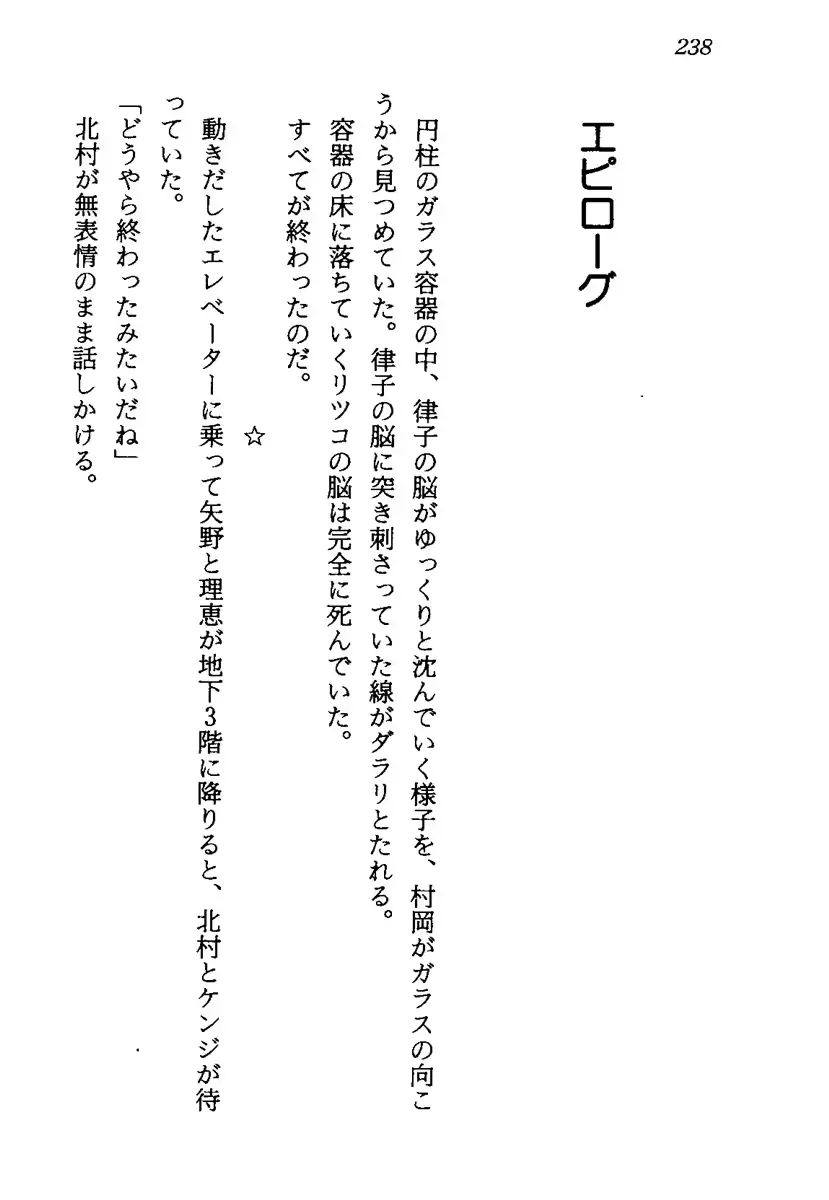 238
エピローグ
円柱のガラス容器の中、律子の脳がゆっくりと沈んでいく様子を、村岡がガラスの向こ
うから見つめていた。律子の脳に突き刺さっていた線がダラリとたれる。
容器の床に落ちていくリツコの脳は完全に死んでいた。
すべてが終わったのだ。
☆
動きだしたエレベーターに乗って矢野と理恵が地下3階に降りると、北村とケンジが待
っていた。
「どうやら終わったみたいだね」
北村が無表情のまま話しかける。